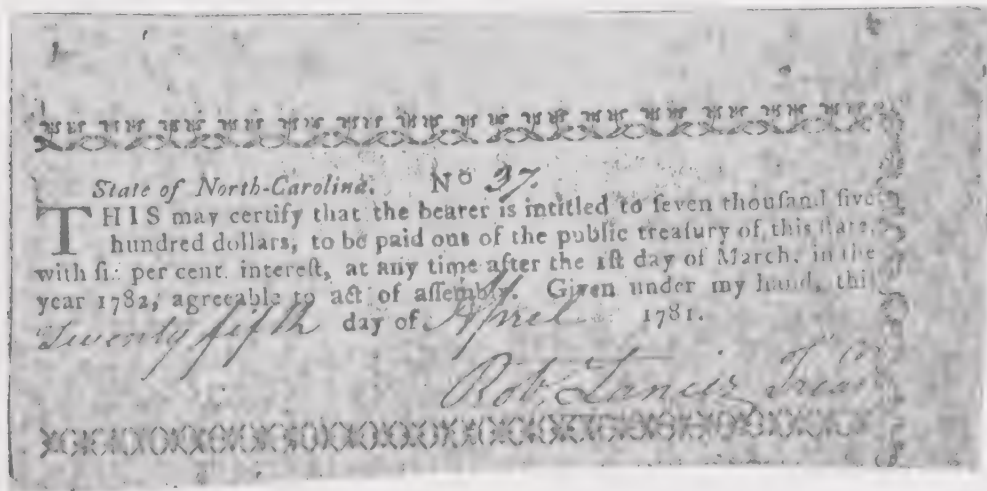 State of North-Carolina. No 37.
THIS may certify that the bearer is intitled to ſeven thouſand five
hundred dollars, to be paid out of the public treaſury of this ſtate,
with ſix per cent. intereſt, at any time after the 1ſt day of March, in the
year 1782, agreeable to act of aſſembly. Given under my hand, this
Twenty fifth day of April 1781.
Rob. Lanier Treas